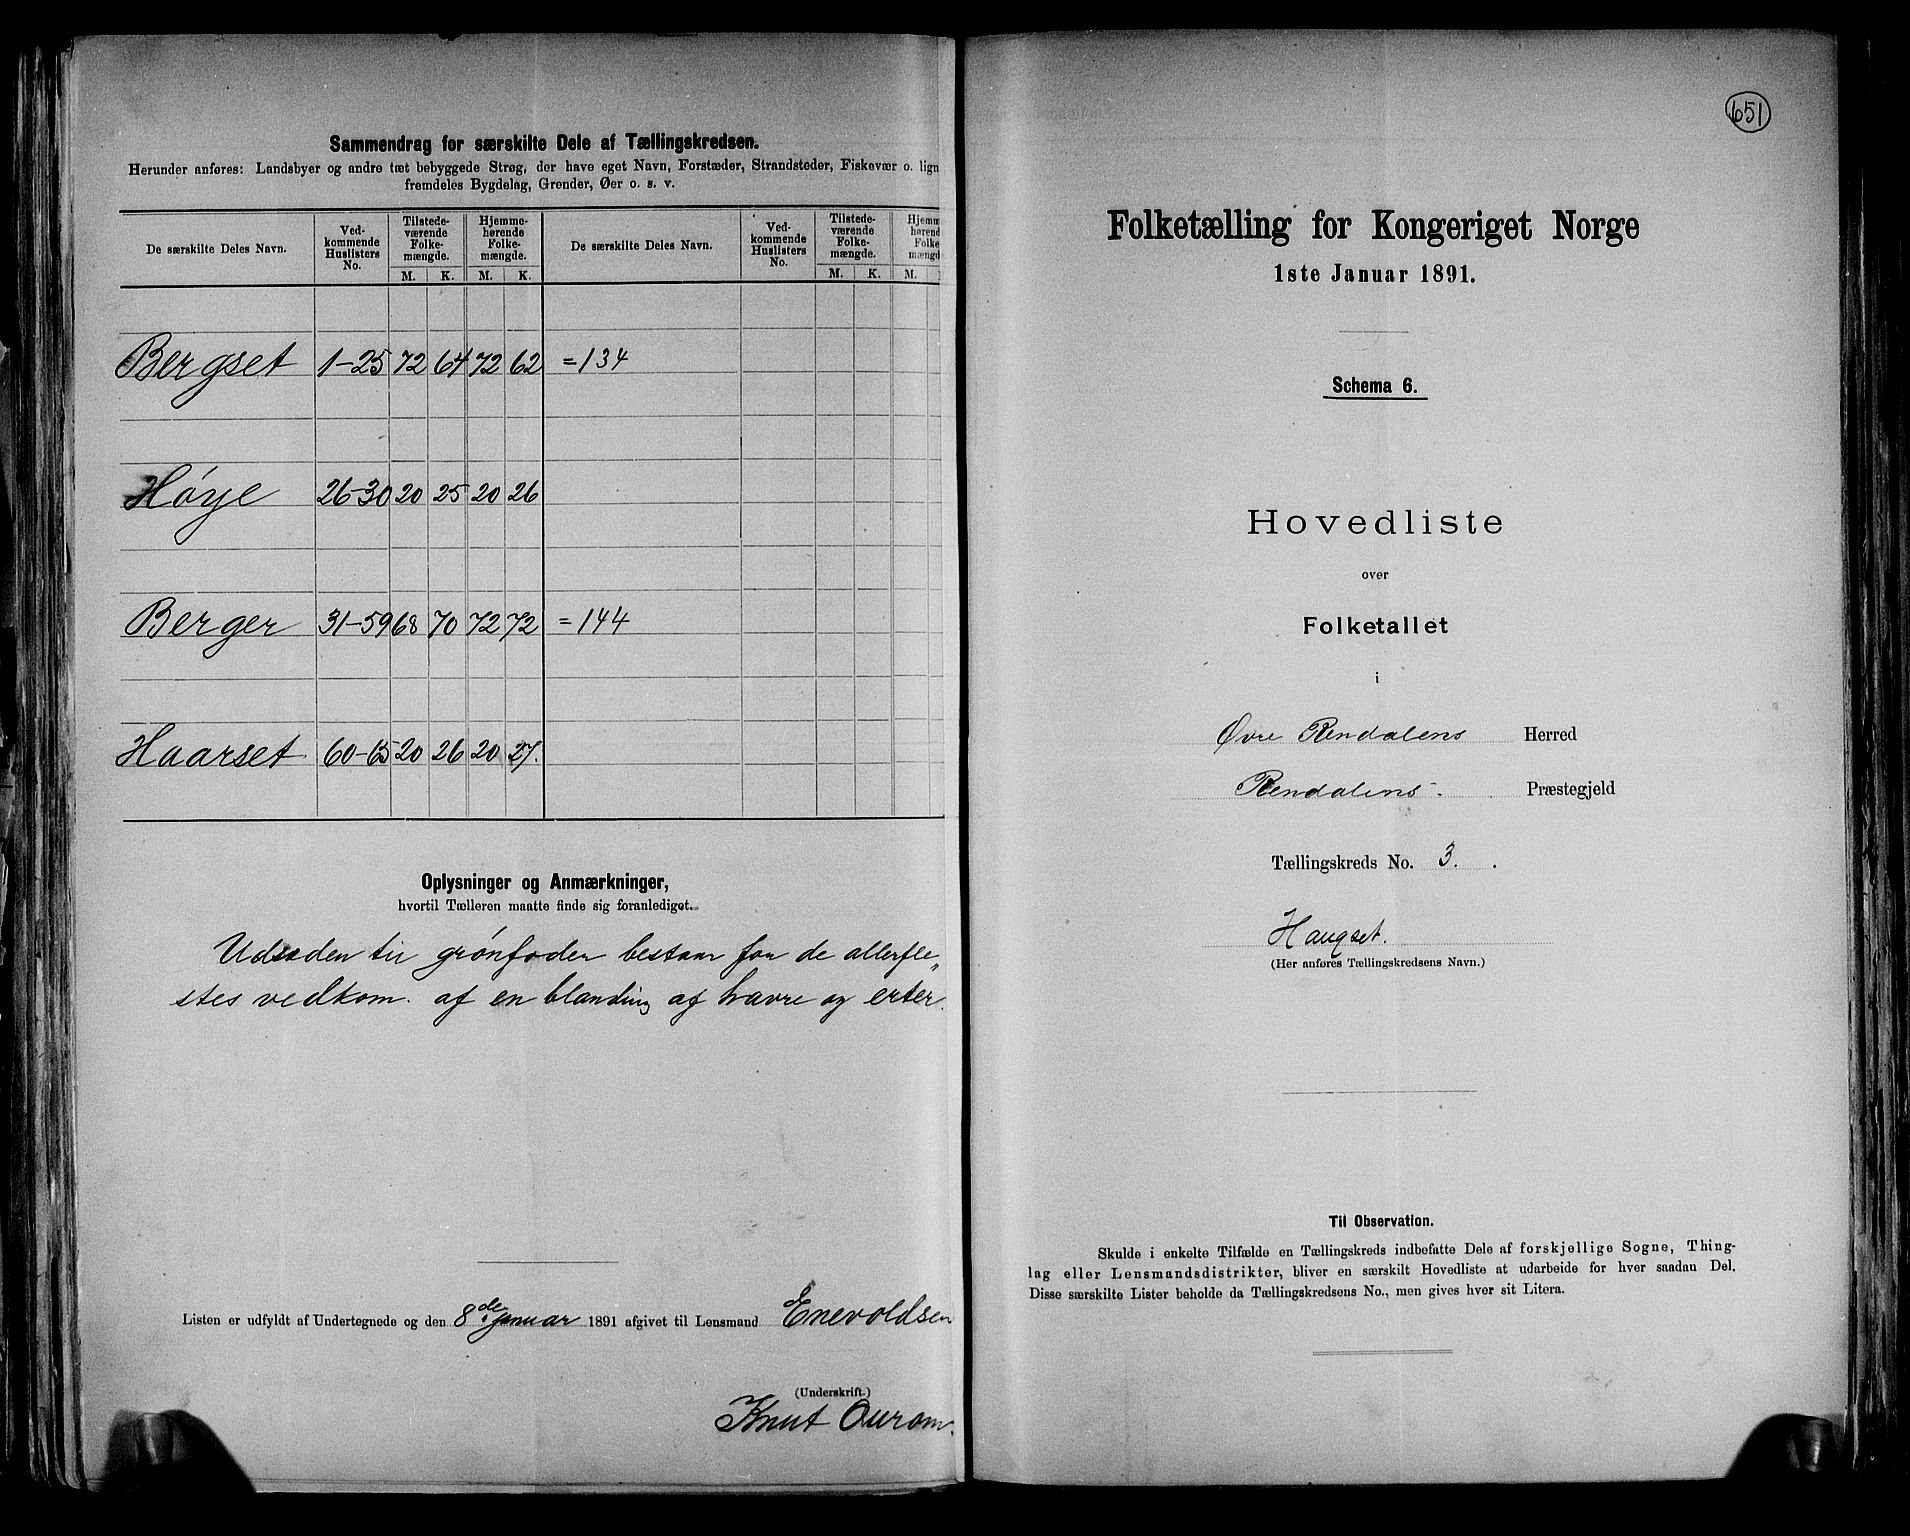 Sammendrag for særskilte Dele af Tællingskredsen.
Herunder anføres: Landsbyer og andre tæt bebyggede Strøg, der have eget Navn, Forstæder, Strandsteder, Fiskevær o. lign
fremdeles Bygdelag, Grender, Øer o. s. v.
De særskilte Deles Navn. Ved-kommende Huslisters No. Tilstede-værende Folke-mængde. Hjemme-hørende Folke-mængde. De særskilte Deles Navn. Ved-kommende Huslisters No. Tilstede-værende Folke-mængde. Hjemm hørend Folke mængd
M. K. M. K. M. K. M.
Bergset 1-25 72 64 72 62 = 134
Høye 26-30 20 25 20 26
Berger 31-59 68 70 72 72 = 144
Haarset 60-65 20 26 20 27.
Oplysninger og Anmærkninger,
hvortil Tælleren maatte finde sig foranlediget.
Udsæden til grønfoder bestaar for de allerfle„
stes vedkom. af en blanding af havre og erter.
Listen er udfyldt af Undertegnede og den 8de Januar 1891 afgivet til Lensmand Enevoldsen
(Underskrift.)
Knut
651
Folketælling for Kongeriget Norge
1ste Januar 1891.
Schema 6.
Hovedliste
over
Folketallet
i
Øvre Rendalens Herred
Rendalens. Præstegjeld
Tællingskreds No. 3.
Haugset.
(Her anføres Tællingskredsens Navn.)
Til Observation.
Skulde i enkelte Tilfælde en Tællingskreds indbefatte Dele af forskjellige Sogne, Thing-
lag eller Lensmandsdistrikter, bliver en særskilt Hovedliste at udarbeide for hver saadan Del.
Disse særskilte Lister beholde da Tællingskredsens No., men gives hver sit Litera.